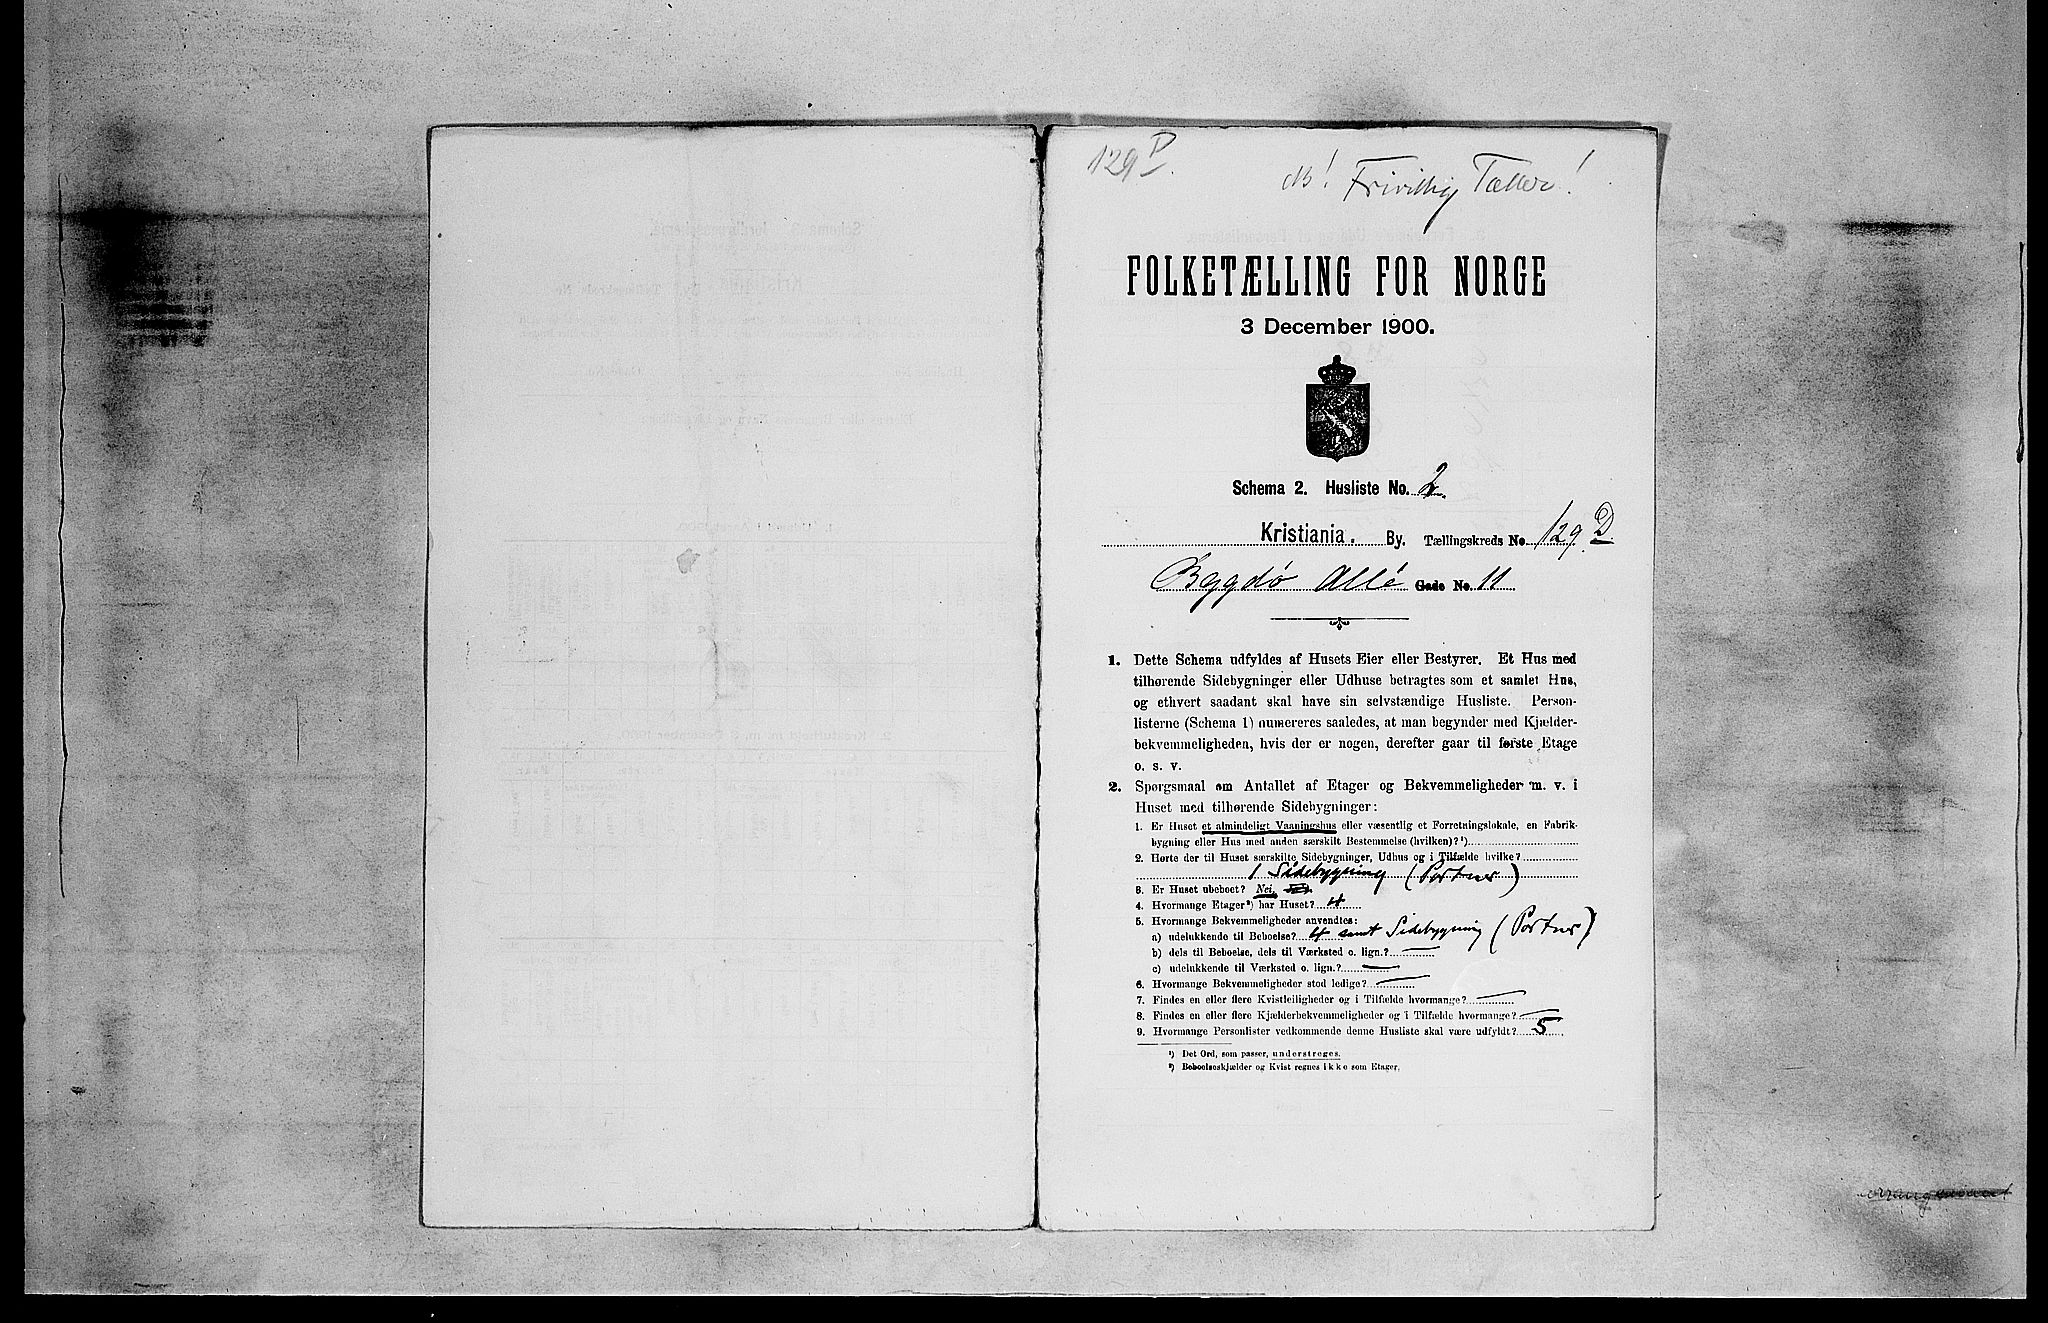 129 D.
NB! Frivillig Tæller!
FOLKETÆLLING FOR NORGE
3 December 1900.
Schema 2. Husliste No. 2
Kristiania. By. Tællingskreds No. 129 D
Bygdø Allé Gade No. 11
1. Dette Schema udfyldes af Husets Eier eller Bestyrer. Et Hus med
tilhørende Sidebygninger eller Udhuse betragtes som et samlet Hus,
og ethvert saadant skal have sin selvstændige Husliste. Person-
listerne (Schema 1) numereres saaledes, at man begynder med Kjælder-
bekvemmeligheden, hvis der er nogen, derefter gaar til første Etage
o. s. v.
2. Spørgsmaal om Antallet af Etager og Bekvemmeligheder m. v. i
Huset med tilhørende Sidebygninger:
1. Er Huset et almindeligt Vaaningshus eller væsentlig et Forretningslokale, en Fabrik-
bygning eller Hus med anden særskilt Bestemmelse (hvilken)? ¹)
2. Hørte der til Huset særskilte Sidebygninger, Udhus og i Tilfælde hvilke?
1 Sidebygning (Portner)
3. Er Huset ubeboet? Nei.
4. Hvormange Etager ²) har Huset? 4
5. Hvormange Bekvemmeligheder anvendtes:
a) udelukkende til Beboelse? 4 samt Sidebygning (Portner)
b) dels til Beboelse, dels til Værksted o. lign.? —
c) udelukkende til Værksted o. lign.? —
6. Hvormange Bekvemmeligheder stod ledige? —
7. Findes en eller flere Kvistleiligheder og i Tilfælde hvormange? —
8. Findes en eller flere Kjælderbekvemmeligheder og i Tilfælde hvormange? —
9. Hvormange Personlister vedkommende denne Husliste skal være udfyldt? 5
¹) Det Ord, som passer, understreges.
²) Beboelseskjælder og Kvist regnes ikke som Etager.